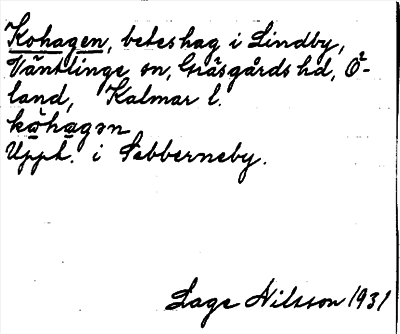 Kohagen, beteshag i Lindby,
Ventlinge sn, Gräsgårds hd, Ö-
land, Kalmar l.
kọ̄hạgən
Uppt. i Sebberneby.
Lage Nilsson 1931